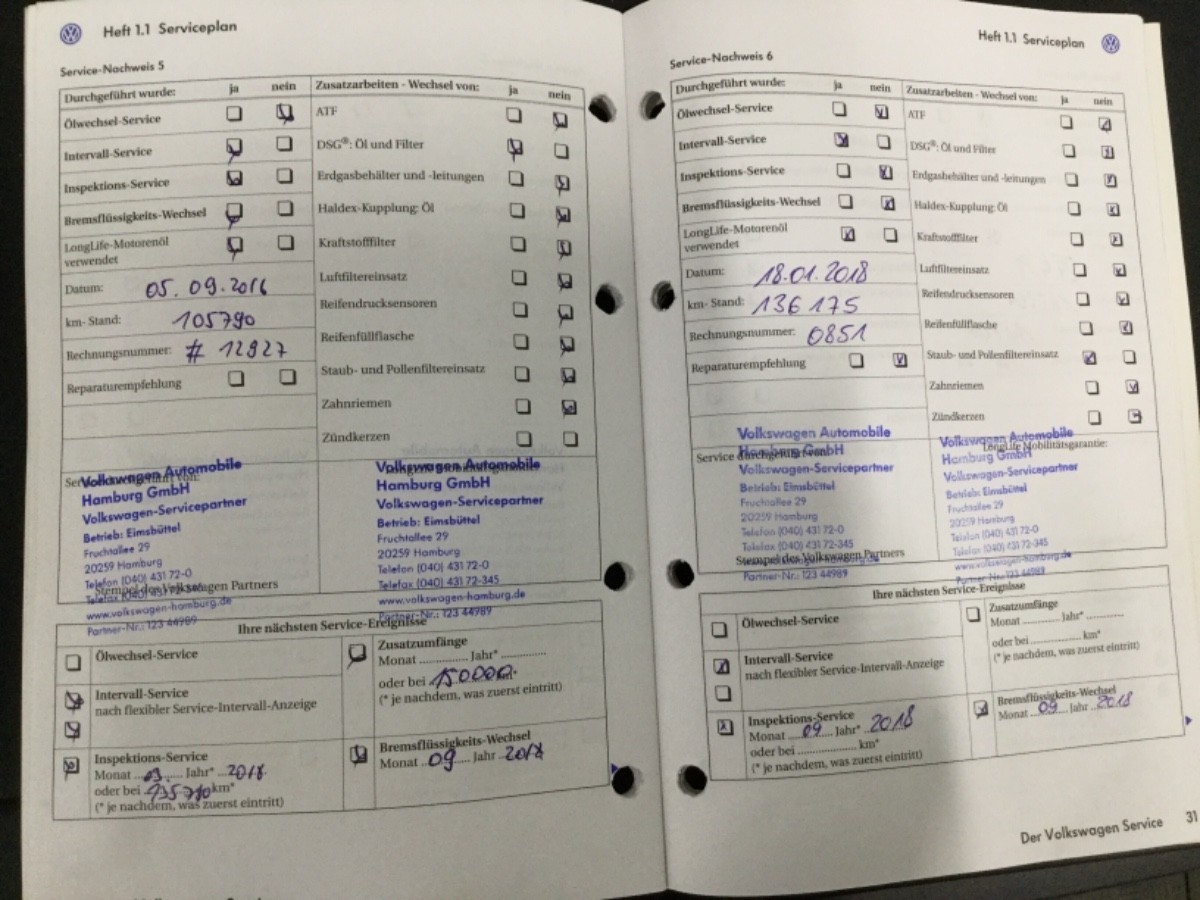 Heft 1.1 Serviceplan
Service-Nachweis 5
Durchgeführt wurde: ja nein
Ölwechsel-Service
Intervall-Service
Inspektions-Service
Bremsflüssigkeits-Wechsel
LongLife-Motorenöl
verwendet
Datum: 05.09.2016
km- Stand: 105790
Rechnungsnummer: # 12927
Reparaturempfehlung
Zusatzarbeiten - Wechsel von: ja nein
ATF
DSG®: Öl und Filter
Erdgasbehälter und -leitungen
Haldex-Kupplung: Öl
Kraftstofffilter
Luftfiltereinsatz
Reifendrucksensoren
Reifenfüllflasche
Staub- und Pollenfiltereinsatz
Zahnriemen
Zündkerzen
Volkswagen Automobile
Hamburg GmbH
Volkswagen-Servicepartner
Betrieb: Eimsbüttel
Fruchtallee 29
20259 Hamburg
Telefon (040) 431 72-0
Telefax (040) 431 72-345
www.volkswagen-hamburg.de
Partner-Nr.: 123 44989
Stempel des Volkswagen Partners
Volkswagen Automobile
Hamburg GmbH
Volkswagen-Servicepartner
Betrieb: Eimsbüttel
Fruchtallee 29
20259 Hamburg
Telefon (040) 431 72-0
Telefax (040) 431 72-345
www.volkswagen-hamburg.de
Partner-Nr.: 123 44989
Ihre nächsten Service-Ereignisse
Ölwechsel-Service
Intervall-Service
nach flexibler Service-Intervall-Anzeige
Inspektions-Service
Monat 09 Jahr* 2018
oder bei 135790 km*
(* je nachdem, was zuerst eintritt)
Zusatzumfänge
Monat Jahr*
oder bei 150000 km*
(* je nachdem, was zuerst eintritt)
Bremsflüssigkeits-Wechsel
Monat 09 Jahr 2018
Heft 1.1 Serviceplan
Service-Nachweis 6
Durchgeführt wurde: ja nein
Ölwechsel-Service
Intervall-Service
Inspektions-Service
Bremsflüssigkeits-Wechsel
LongLife-Motorenöl
verwendet
Datum: 18.01.2018
km- Stand: 136175
Rechnungsnummer: 0851
Reparaturempfehlung
Zusatzarbeiten - Wechsel von: ja nein
ATF
DSG®: Öl und Filter
Erdgasbehälter und -leitungen
Haldex-Kupplung: Öl
Kraftstofffilter
Luftfiltereinsatz
Reifendrucksensoren
Reifenfüllflasche
Staub- und Pollenfiltereinsatz
Zahnriemen
Zündkerzen
Service durchgeführt von:
Volkswagen Automobile
Hamburg GmbH
Volkswagen-Servicepartner
Betrieb: Eimsbüttel
Fruchtallee 29
20259 Hamburg
Telefon (040) 431 72-0
Telefax (040) 431 72-345
www.volkswagen-hamburg.de
Partner-Nr.: 123 44989
Stempel des Volkswagen Partners
LongLife Mobilitätsgarantie:
Volkswagen Automobile
Hamburg GmbH
Volkswagen-Servicepartner
Betrieb: Eimsbüttel
Fruchtallee 29
20259 Hamburg
Telefon (040) 431 72-0
Telefax (040) 431 72-345
www.volkswagen-hamburg.de
Partner-Nr.: 123 44989
Ihre nächsten Service-Ereignisse
Ölwechsel-Service
Intervall-Service
nach flexibler Service-Intervall-Anzeige
Inspektions-Service
Monat 09 Jahr* 2018
oder bei km*
(* je nachdem, was zuerst eintritt)
Zusatzumfänge
Monat Jahr*
oder bei km*
(* je nachdem, was zuerst eintritt)
Bremsflüssigkeits-Wechsel
Monat 09 Jahr 2018
Der Volkswagen Service 31